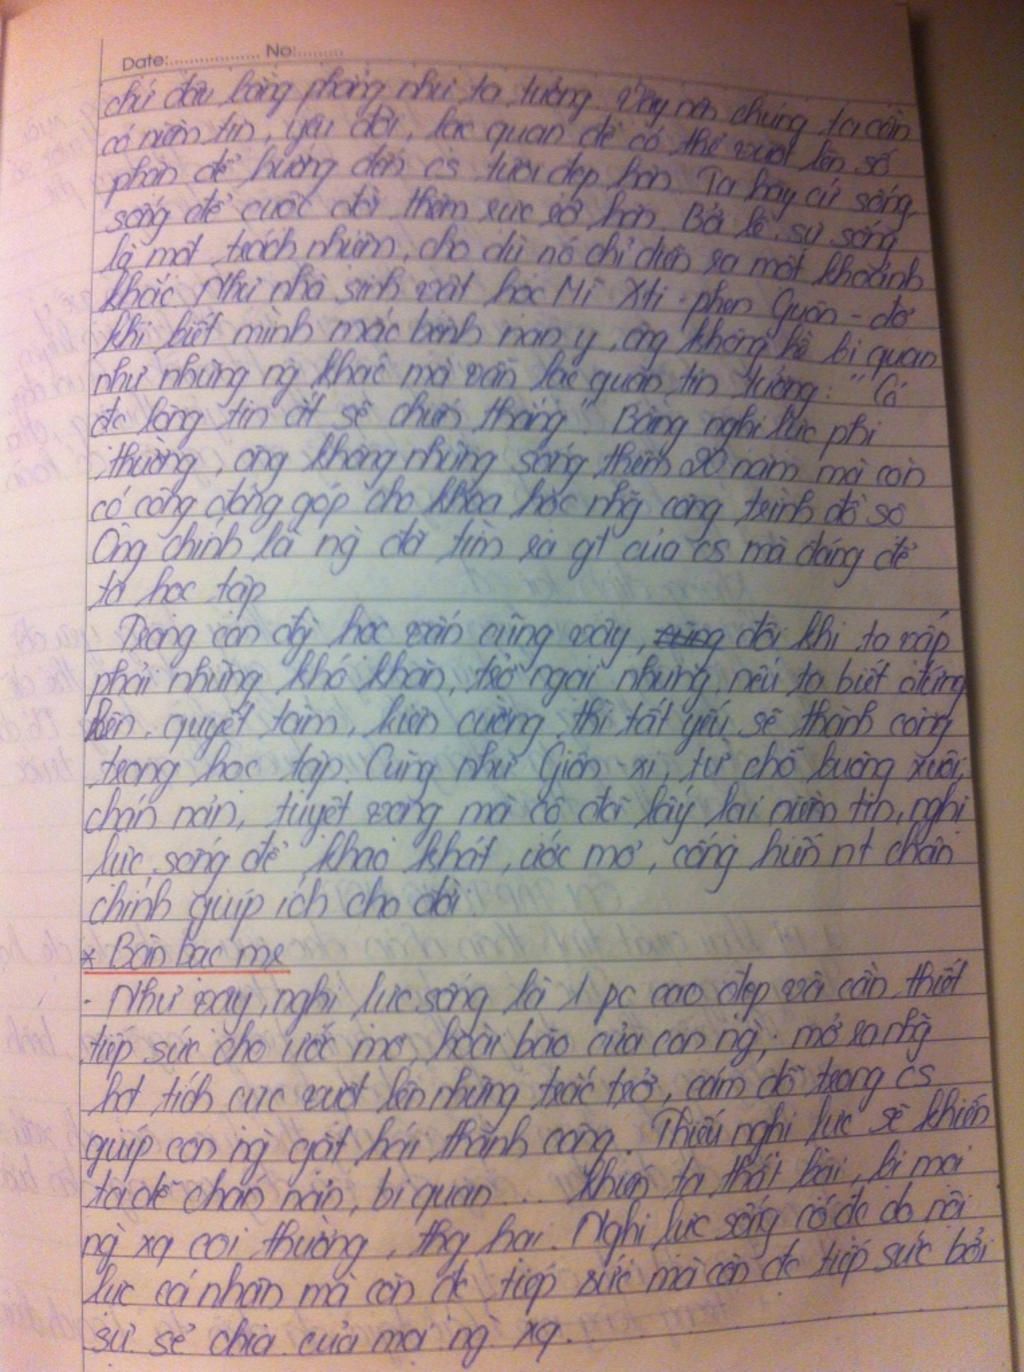 Date:................. No:.........
chứ đâu bằng phẳng như ta tưởng. Vậy nên chúng ta cần
có niềm tin, yêu đời, lạc quan để có thể vượt lên số
phận để hướng đến cs tươi đẹp hơn. Ta hãy cứ sống,
sống để cuộc đời thêm rực rỡ hơn. Bởi lẽ, sự sống
là một trách nhiệm, cho dù nó chỉ diễn ra một khoảnh
khắc. Như nhà sinh vật học Mĩ Xti-phen Guôn-đơ
khi biết mình mắc bệnh nan y, ông không hề bi quan
như những ng khác mà vẫn lạc quan, tin tưởng: "Có
đc lòng tin ắt sẽ chiến thắng". Bằng nghị lực phi
thường, ông không những sống thêm 20 năm mà còn
có công đóng góp cho khoa học nhg công trình đồ sộ
Ông chính là ng đã tìm ra gt của cs mà đáng để
ta học tập
Trong con đg học vấn cũng vậy, đôi khi ta vấp
phải những khó khăn, trở ngại nhưng, nếu ta biết đứng
lên, quyết tâm, kiên cường thì tất yếu sẽ thành công
trong học tập. Cũng như Giôn-xi, từ chỗ buông xuôi,
chán nản, tuyệt vọng mà cô đã lấy lại niềm tin, nghị
lực sống để khao khát, ước mơ, cống hiến nt chân
chính giúp ích cho đời
* Bàn bạc mr
- Như vậy, nghị lực sống là 1 pc cao đẹp và cần thiết
tiếp sức cho ước mơ, hoài bão của con ng; mở ra nhg
hđ tích cực vượt lên những trắc trở, cám dỗ trong cs
giúp con ng gặt hái thành công. Thiếu nghị lực sẽ khiến
ta dễ chán nản, bi quan... khiến ta thất bại, bị mọi
ng xq coi thường, thg hại. Nghị lực sống có đc do nội
lực cá nhân mà còn đc tiếp sức mà còn đc tiếp sức bởi
sự sẻ chia của mọi ng xq.